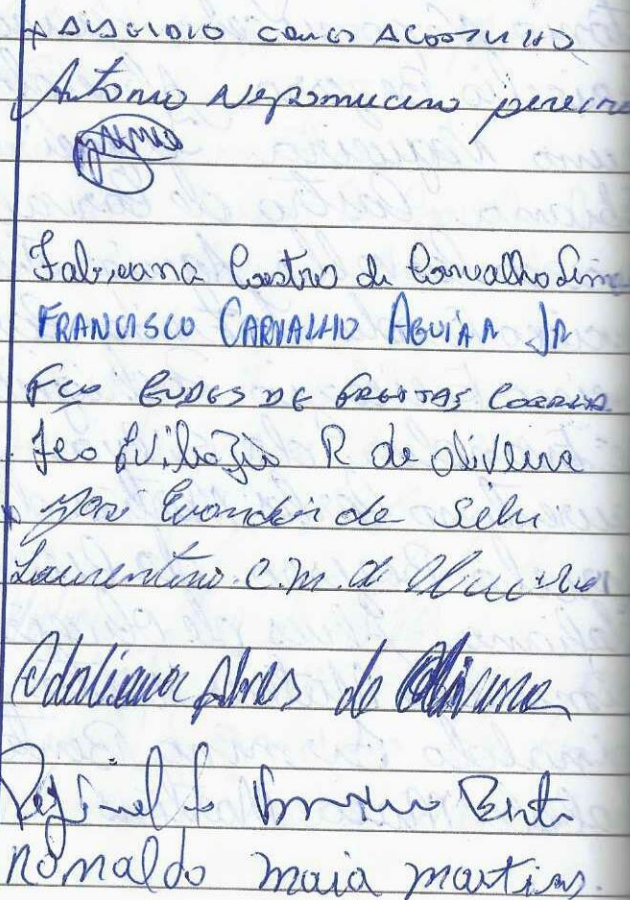 Antonio Nepomuceno pereira
Fabiana Castro de Carvalho Lima
FRANCISCO CARVALHO AGUIAR JR
Fco EUDES DE FREITAS CORREIA
Fco Evilazio R de oliveira
José Evandir de Silva
Laurentino C. M. de Oliveira
Adaliana Alves de Oliveira
Reginaldo Bento
Ronaldo maia martins